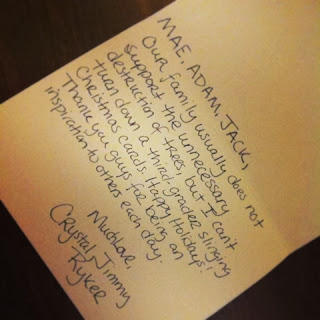 MAE, ADAM, JACK,
Our family usually does not
support the unnecessary
destruction of trees, but I can't
turn down a third grader slinging
Christmas cards. Happy Holidays!
Thank you guys for being an
inspiration to others each day.
Much Love,
Crystal, Jimmy
Ryker